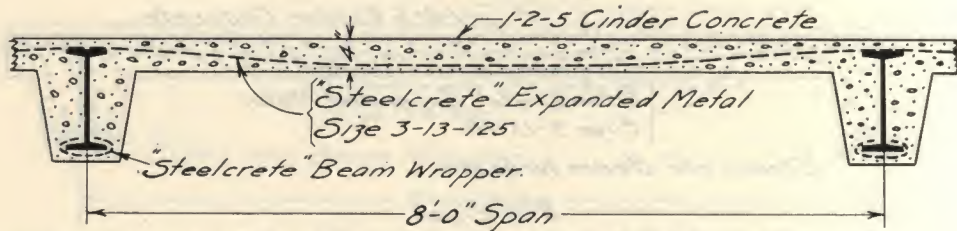 1-2-5 Cinder Concrete
4"
"Steelcrete" Expanded Metal
Size 3-13-125
"Steelcrete" Beam Wrapper.
8'-0" Span